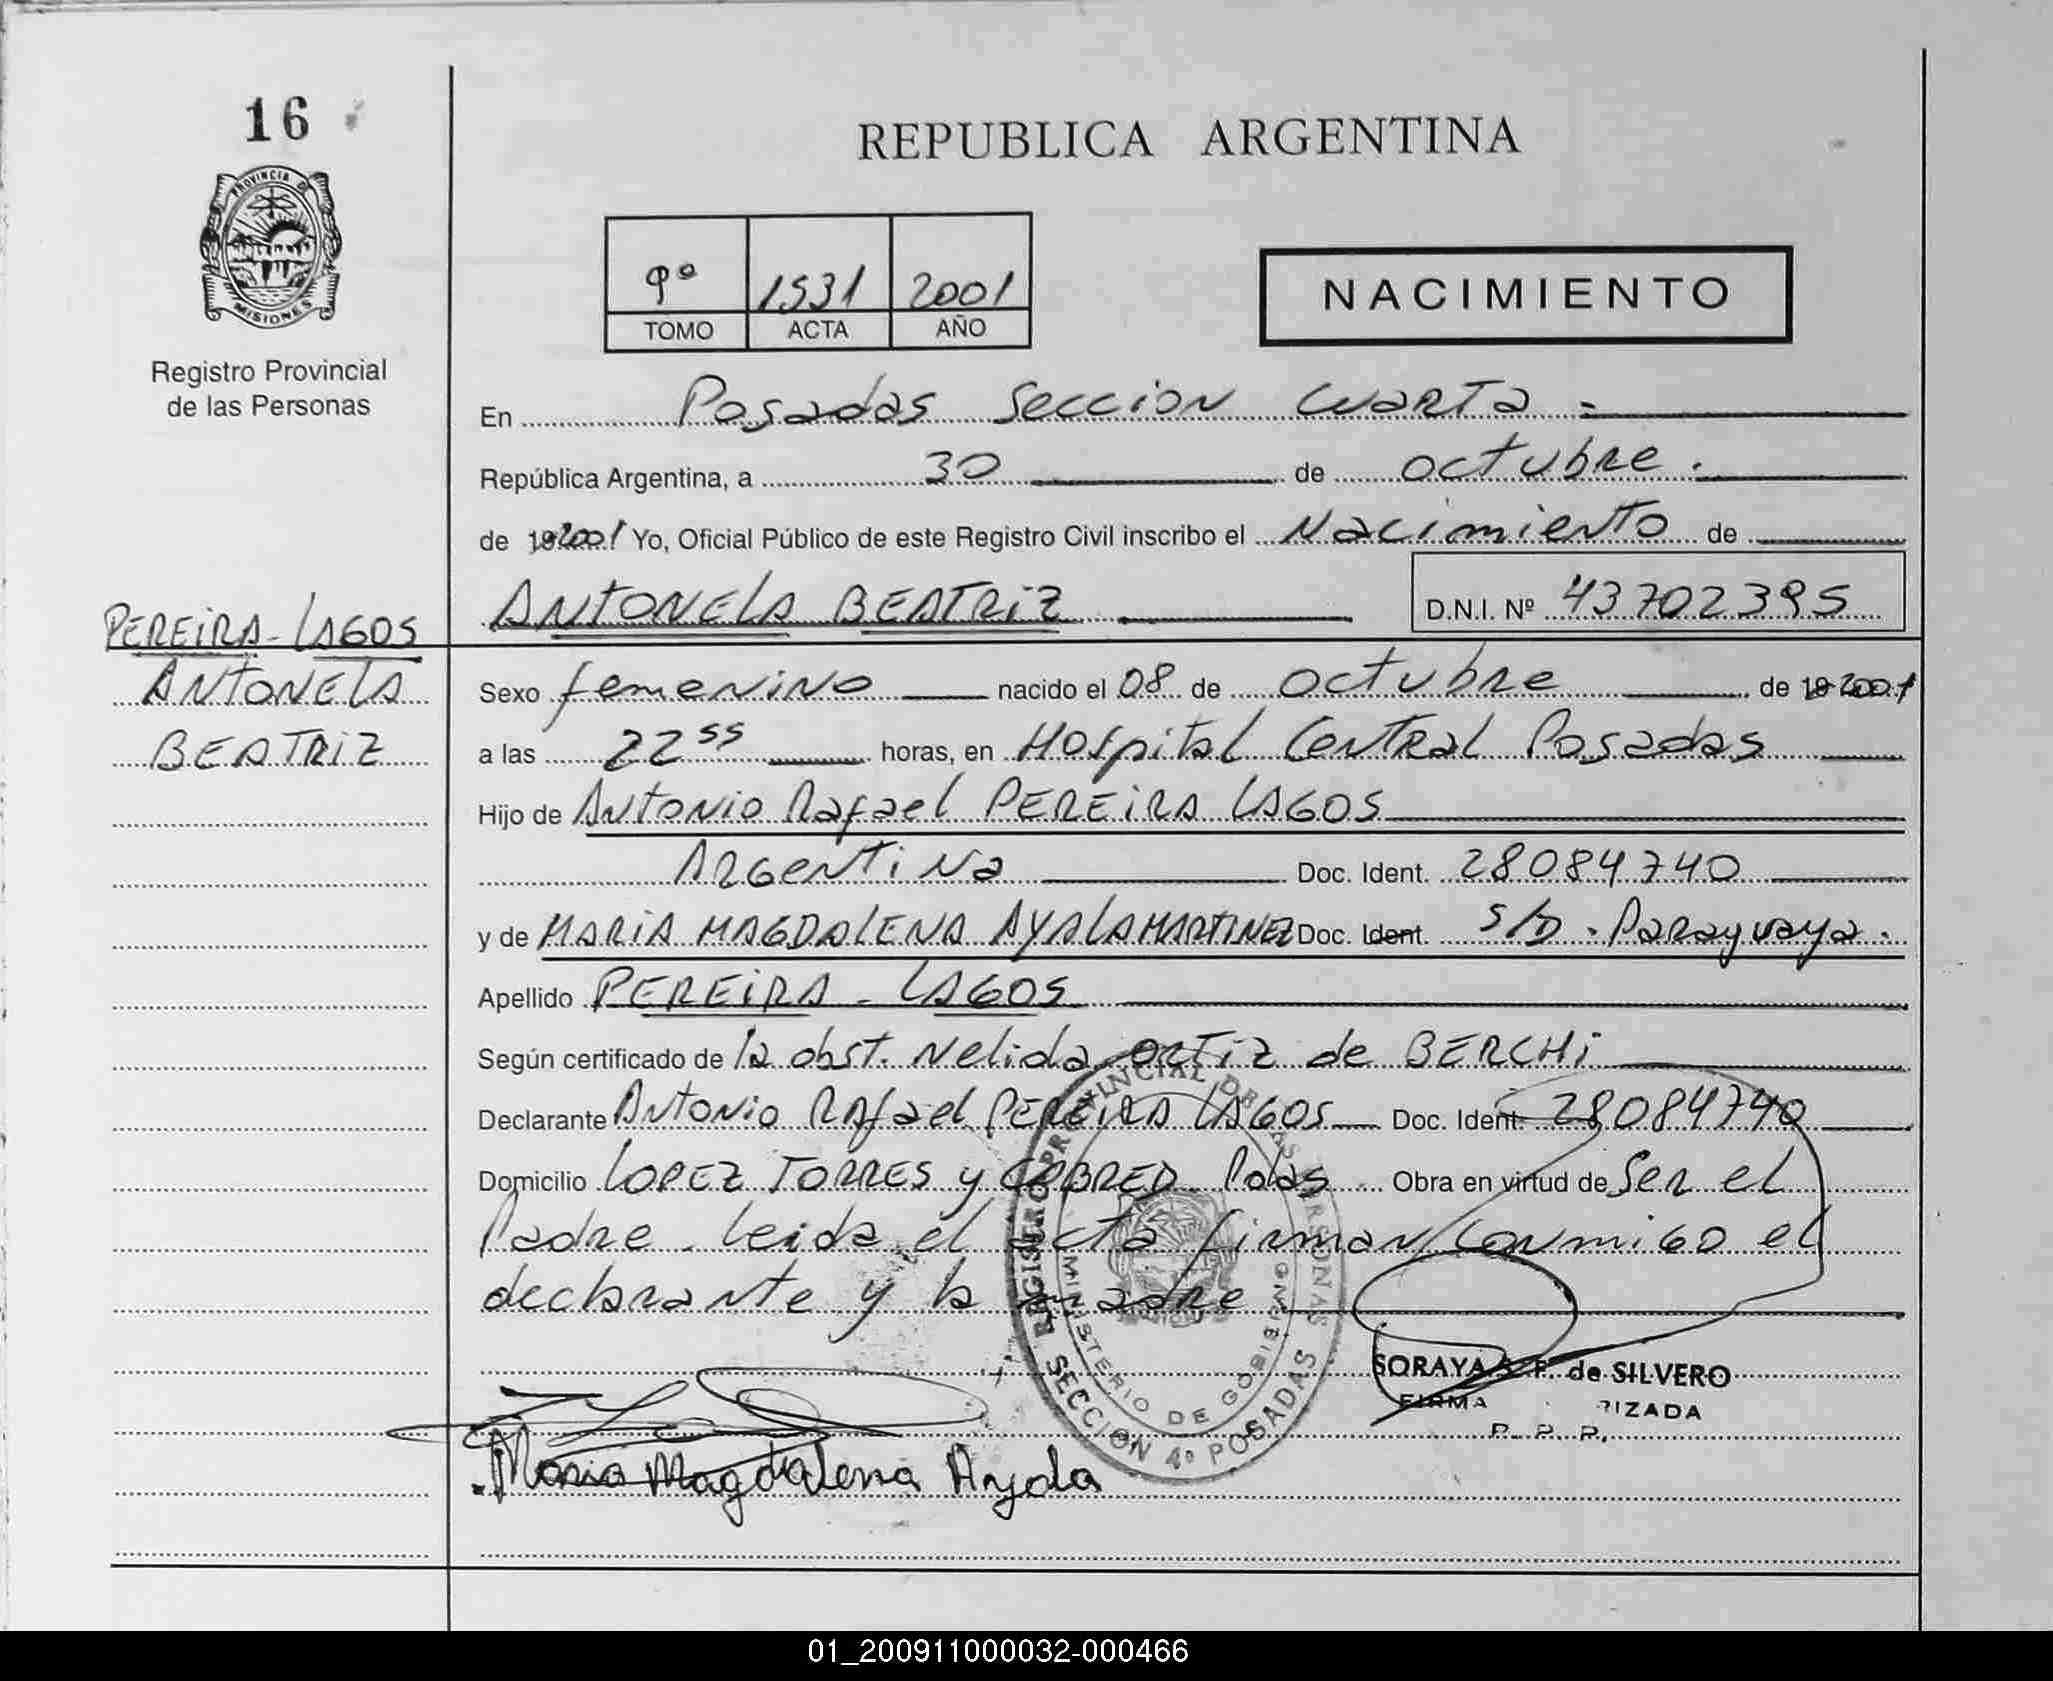 16
PROVINCIA DE
MISIONES
Registro Provincial
de las Personas
REPUBLICA ARGENTINA
9º 1531 2001
TOMO ACTA AÑO
NACIMIENTO
En Posadas Seccion Cuarta =
República Argentina, a 30 de octubre.
de 192001 Yo, Oficial Público de este Registro Civil inscribo el Nacimiento de
ANTONELA BEATRIZ D.N.I. Nº 43702395
PEREIRA-LAGOS
ANTONELA
BEATRIZ
Sexo femenino nacido el 08 de octubre de 192001
a las 22 55 horas, en Hospital Central Posadas
Hijo de Antonio Rafael PEREIRA LAGOS
Argentina Doc. Ident. 28084740
y de MARIA MAGDALENA AYALA MARTINEZ Doc. Ident. S/D. Paraguaya.
Apellido PEREIRA - LAGOS
Según certificado de la obst. Nelida ORTIZ de BERCHI
Declarante Antonio Rafael PEREIRA LAGOS Doc. Ident. 28084740
Domicilio LOPEZ TORRES y CABRED Pdas Obra en virtud de Ser el
Padre. leida el acta firman conmigo el
declarante y la madre
REGISTRO PROVINCIAL DE LAS PERSONAS
MINISTERIO DE GOBIERNO
SECCION 4º POSADAS
SORAYA S. F. de SILVERO
FIRMA RIZADA
R. P. P.
Maria Magdalena Ayala
01_200911000032-000466